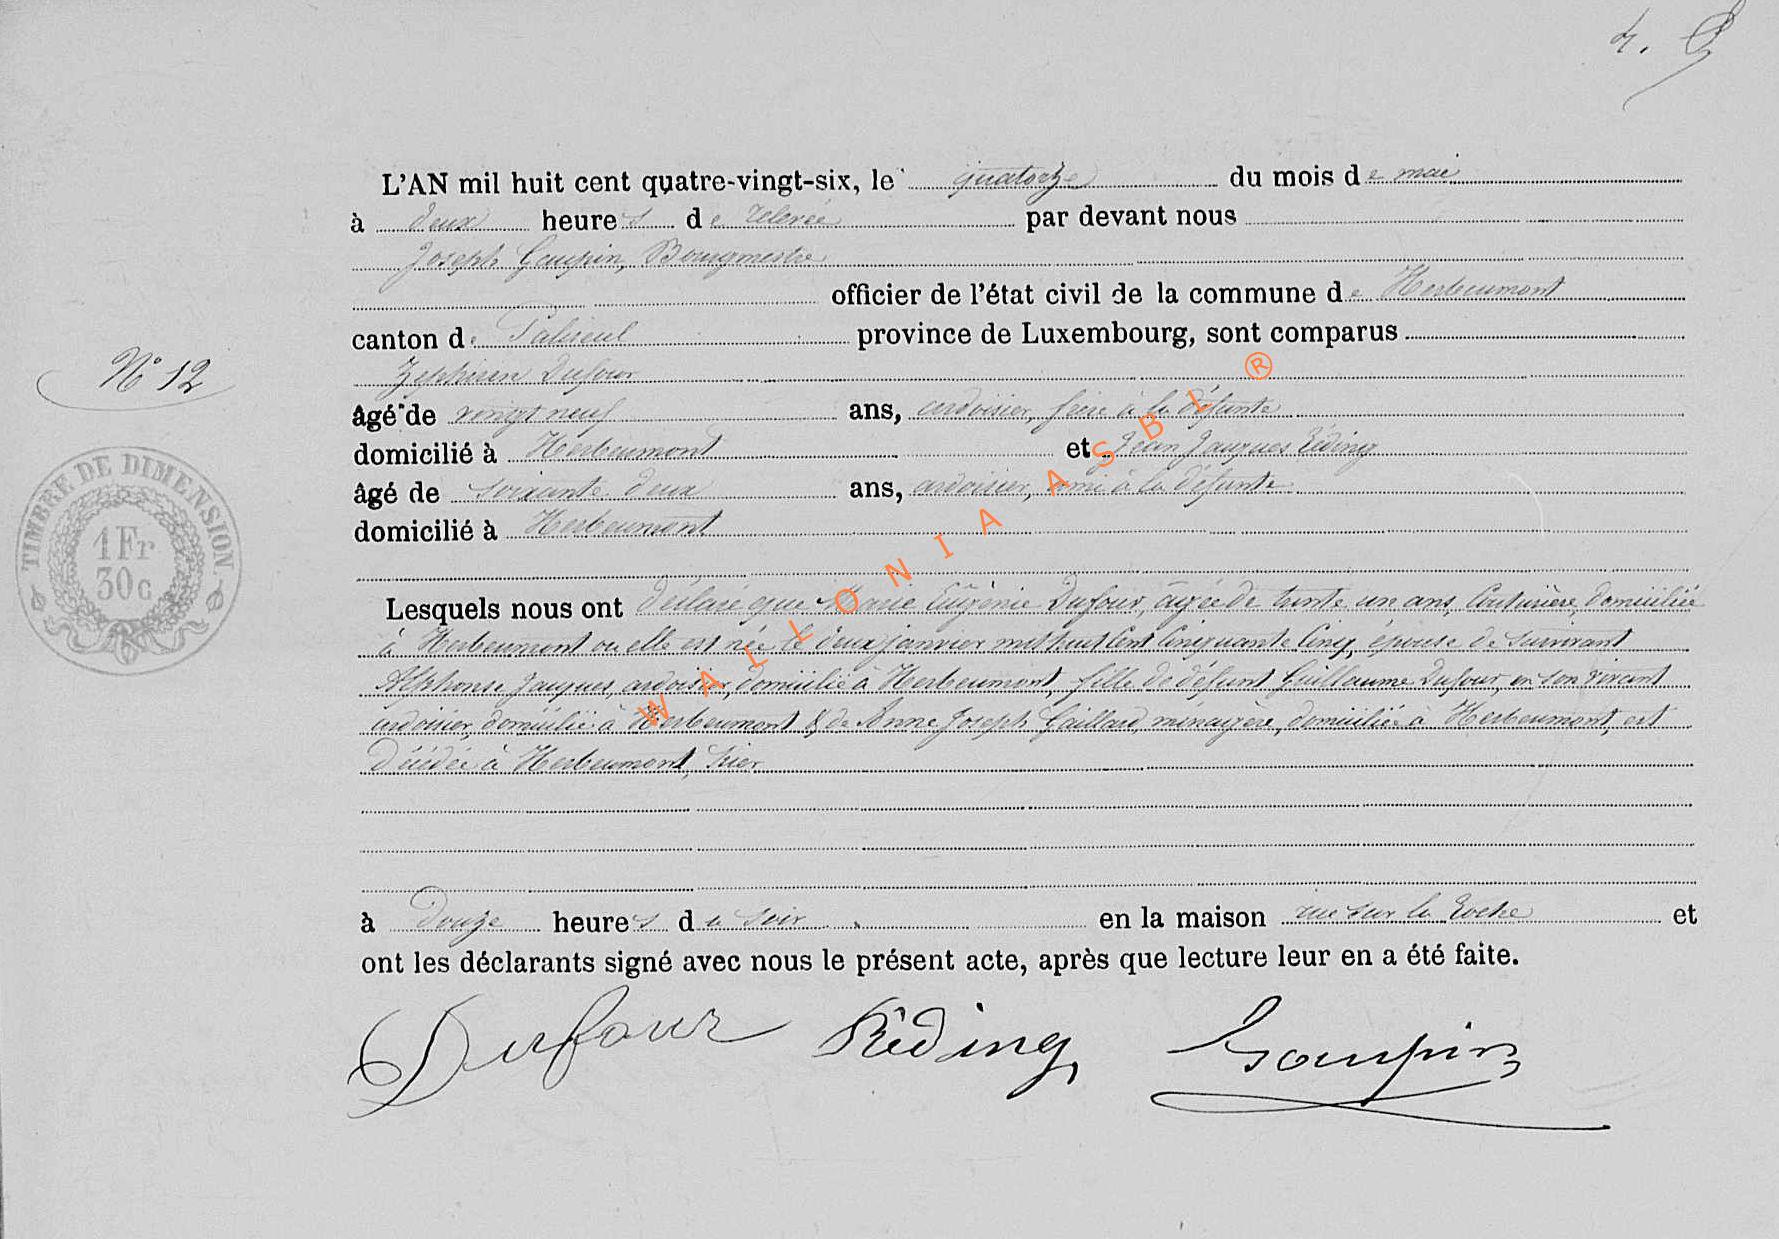 L'AN mil huit cent quatre-vingt-six, le quatorze du mois de mai
à deux heures de relevée par devant nous
Joseph Gaupin, Bourgmestre
officier de l'état civil de la commune de Herbeumont
canton de Paliseul province de Luxembourg, sont comparus
Zephirin Dufour
N° 12
âgé de vingt neuf ans, ardoisier, frère à la défunte
domicilié à Herbeumont et Jean Jacques Réding
âgé de soixante deux ans, ardoisier, ami à la défunte
domicilié à Herbeumont
TIMBRE DE DIMENSION
1 Fr
30 c
Lesquels nous ont déclaré que Marie Eugénie Dufour, âgée de trente un ans, Couturière, domiciliée
à Herbeumont ou elle est née le deux janvier mil huit Cent Cinquante Cinq, épouse de survivant
Alphonse Jacques, ardoisier, domicilié à Herbeumont, fille de défunt Guillaume Dufour, en son vivant
ardoisier, domicilié à Herbeumont & de Anne Joseph Gaillard, ménagère, domiciliée à Herbeumont, est
Décédée à Herbeumont, hier
à Douze heures du soir en la maison rue sur la Roche et
ont les déclarants signé avec nous le présent acte, après que lecture leur en a été faite.
Dufour Réding Gaupin
WALLONIA ASBL ®